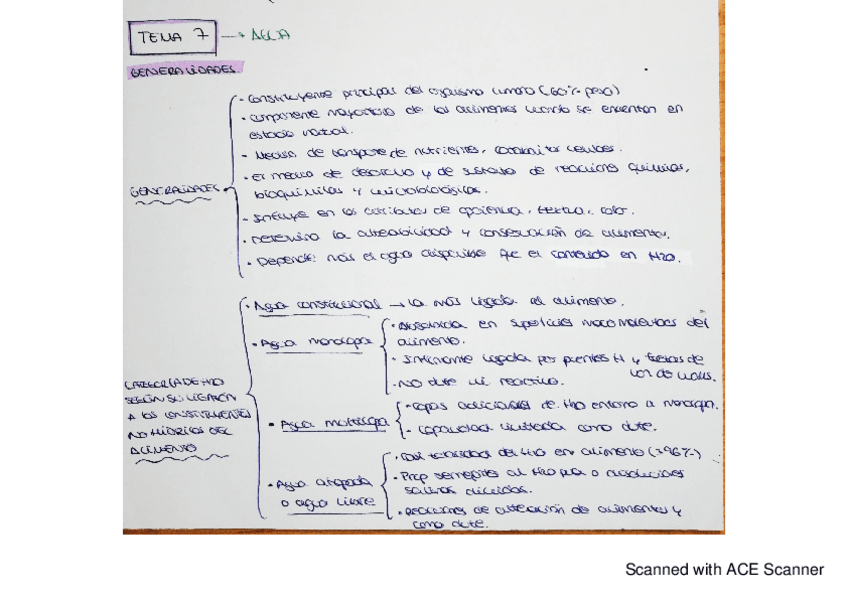 TEMA 7 → AGUA
GENERALIDADES
· Constituyente principal del organismo humano (60% peso)
· Componente mayoritario de los alimentos cuando se encuentran en
estado natural.
· Medio de transporte de nutrientes, control celulas.
· Es medio de desarrollo y de sustrato de reacciones químicas,
bioquímicas y microbiológicas.
GENERALIDADES
· Influye en los atributos de apariencia, textura, color.
· Determina la alterabilidad y conservación de alimentos.
· Depende más el agua disponible que el contenido en H2O.
· Agua constitucional → la más ligada al alimento.
· Agua monocapa
· Absorbida en superficies macromoleculares del
alimento.
· ligada por puentes H y fuerzas de
Van de Waals.
· NO ni reactivo.
CATEGORIA DE H2O
SEGÚN SU UNIÓN
A LOS CONSTITUYENTES
NO HÍDRICOS DEL
ALIMENTO
· Agua multicapa
· Capas adicionales de H2O entorno a monocapa.
· Capacidad limitada como dte.
· Agua atrapada
o agua libre
· Casi totalidad del H2O en alimento (>96%)
· Prop semejantes al H2O pura o disoluciones
salinas diluidas.
· Reacciones de alteración de alimentos y
como dte.
Scanned with ACE Scanner